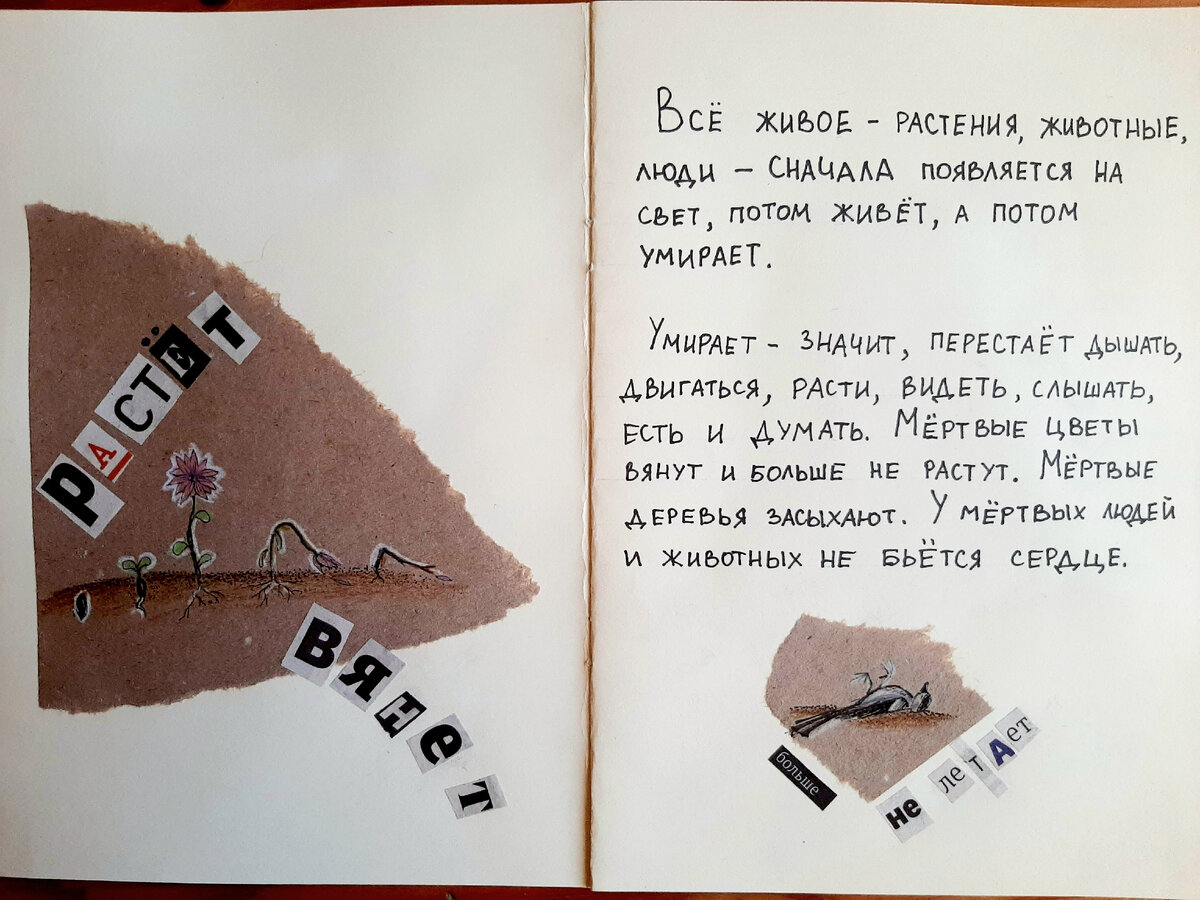 РАСТЁТ
ВЯНЕТ
ВСЁ ЖИВОЕ - РАСТЕНИЯ, ЖИВОТНЫЕ,
ЛЮДИ - СНАЧАЛА ПОЯВЛЯЕТСЯ НА
СВЕТ, ПОТОМ ЖИВЁТ, А ПОТОМ
УМИРАЕТ.
УМИРАЕТ - ЗНАЧИТ, ПЕРЕСТАЁТ ДЫШАТЬ,
ДВИГАТЬСЯ, РАСТИ, ВИДЕТЬ, СЛЫШАТЬ,
ЕСТЬ И ДУМАТЬ. МЁРТВЫЕ ЦВЕТЫ
ВЯНУТ И БОЛЬШЕ НЕ РАСТУТ. МЁРТВЫЕ
ДЕРЕВЬЯ ЗАСЫХАЮТ. У МЁРТВЫХ ЛЮДЕЙ
И ЖИВОТНЫХ НЕ БЬЁТСЯ СЕРДЦЕ.
больше
не летАет